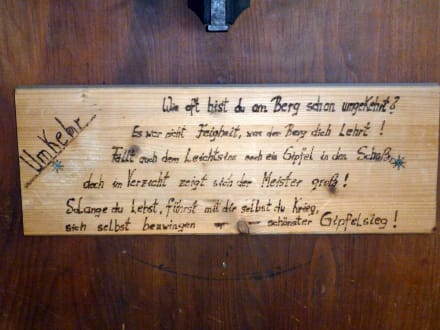 Umkehr
Wie oft bist du am Berg schon umgekehrt?
Es war nicht Feigheit, was der Berg dich Lehrt!
Fällt auch dem Leichtsinn noch ein Gipfel in den Schoß,
doch im Verzicht zeigt sich der Meister groß!
Solange du Lebst, führst mit dir selbst du Krieg,
sich selbst bezwingen – schönster Gipfelsieg!